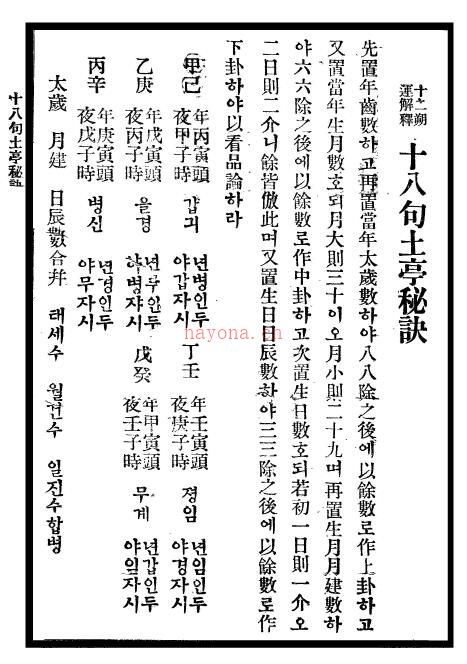 十二朔
運解釋
十八句土亭秘訣
先置年齒數하고再置當年太歲數하야八八除之後에以餘數로作上卦하고
又置當年生月數호되月大則三十이오月小則二十九며再置生月月建數하
야六六除之後에以餘數로作中卦하고次置生日數호되若初一日則一介오
二日則二介니餘皆倣此며又置生日日辰數하야三三除之後에以餘數로作
下卦하야以看品論하라
甲己 年丙寅頭 夜甲子時 갑긔 년병인두 야갑자시 丁壬 年壬寅頭 夜庚子時 졍임 년임인두 야경자시
乙庚 年戊寅頭 夜丙子時 을경 년무인두 야병자시 戊癸 年甲寅頭 夜壬子時 무계 년갑인두 야임자시
丙辛 年庚寅頭 夜戊子時 병신 년경인두 야무자시
太歲 月建 日辰數合幷 태세수 월건수 일진수합병
十八句土亭秘訣
nayona.cn